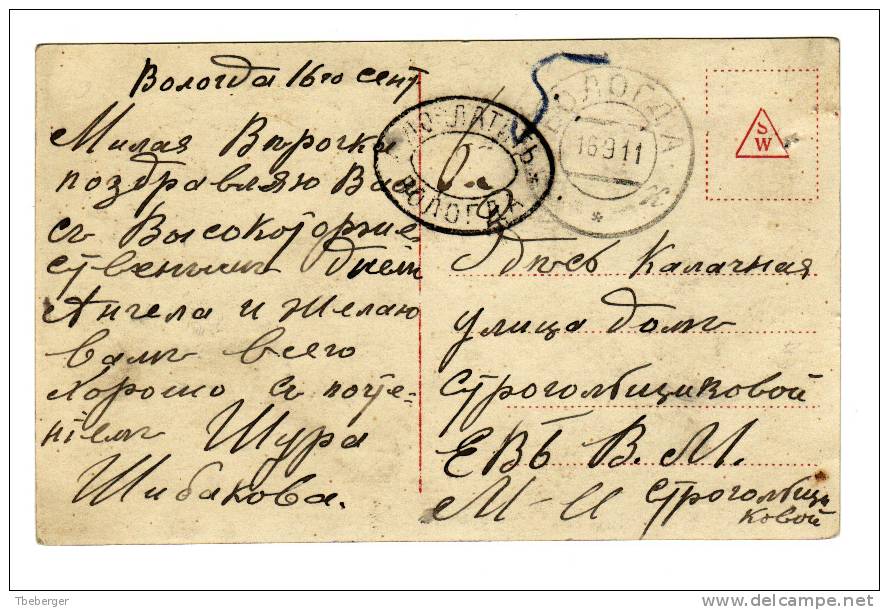 Вологда 16го сент
Милая Вѣрочка
поздравляю Вас
съ Высокоторже
ственнымъ днем
Ангела и желаю
вамъ всего
хорошо съ почте-
ніемъ Шура
Шибакова.
ДОПЛАТИТЬ
ВОЛОГДА
ВОЛОГДА
16 9 11
S
W
Здѣсь Калачная
улица домъ
Строголбщиковой
ЕВБ В. М.
М-и Строголбщи
ковой
Tberberger
delcampe.net